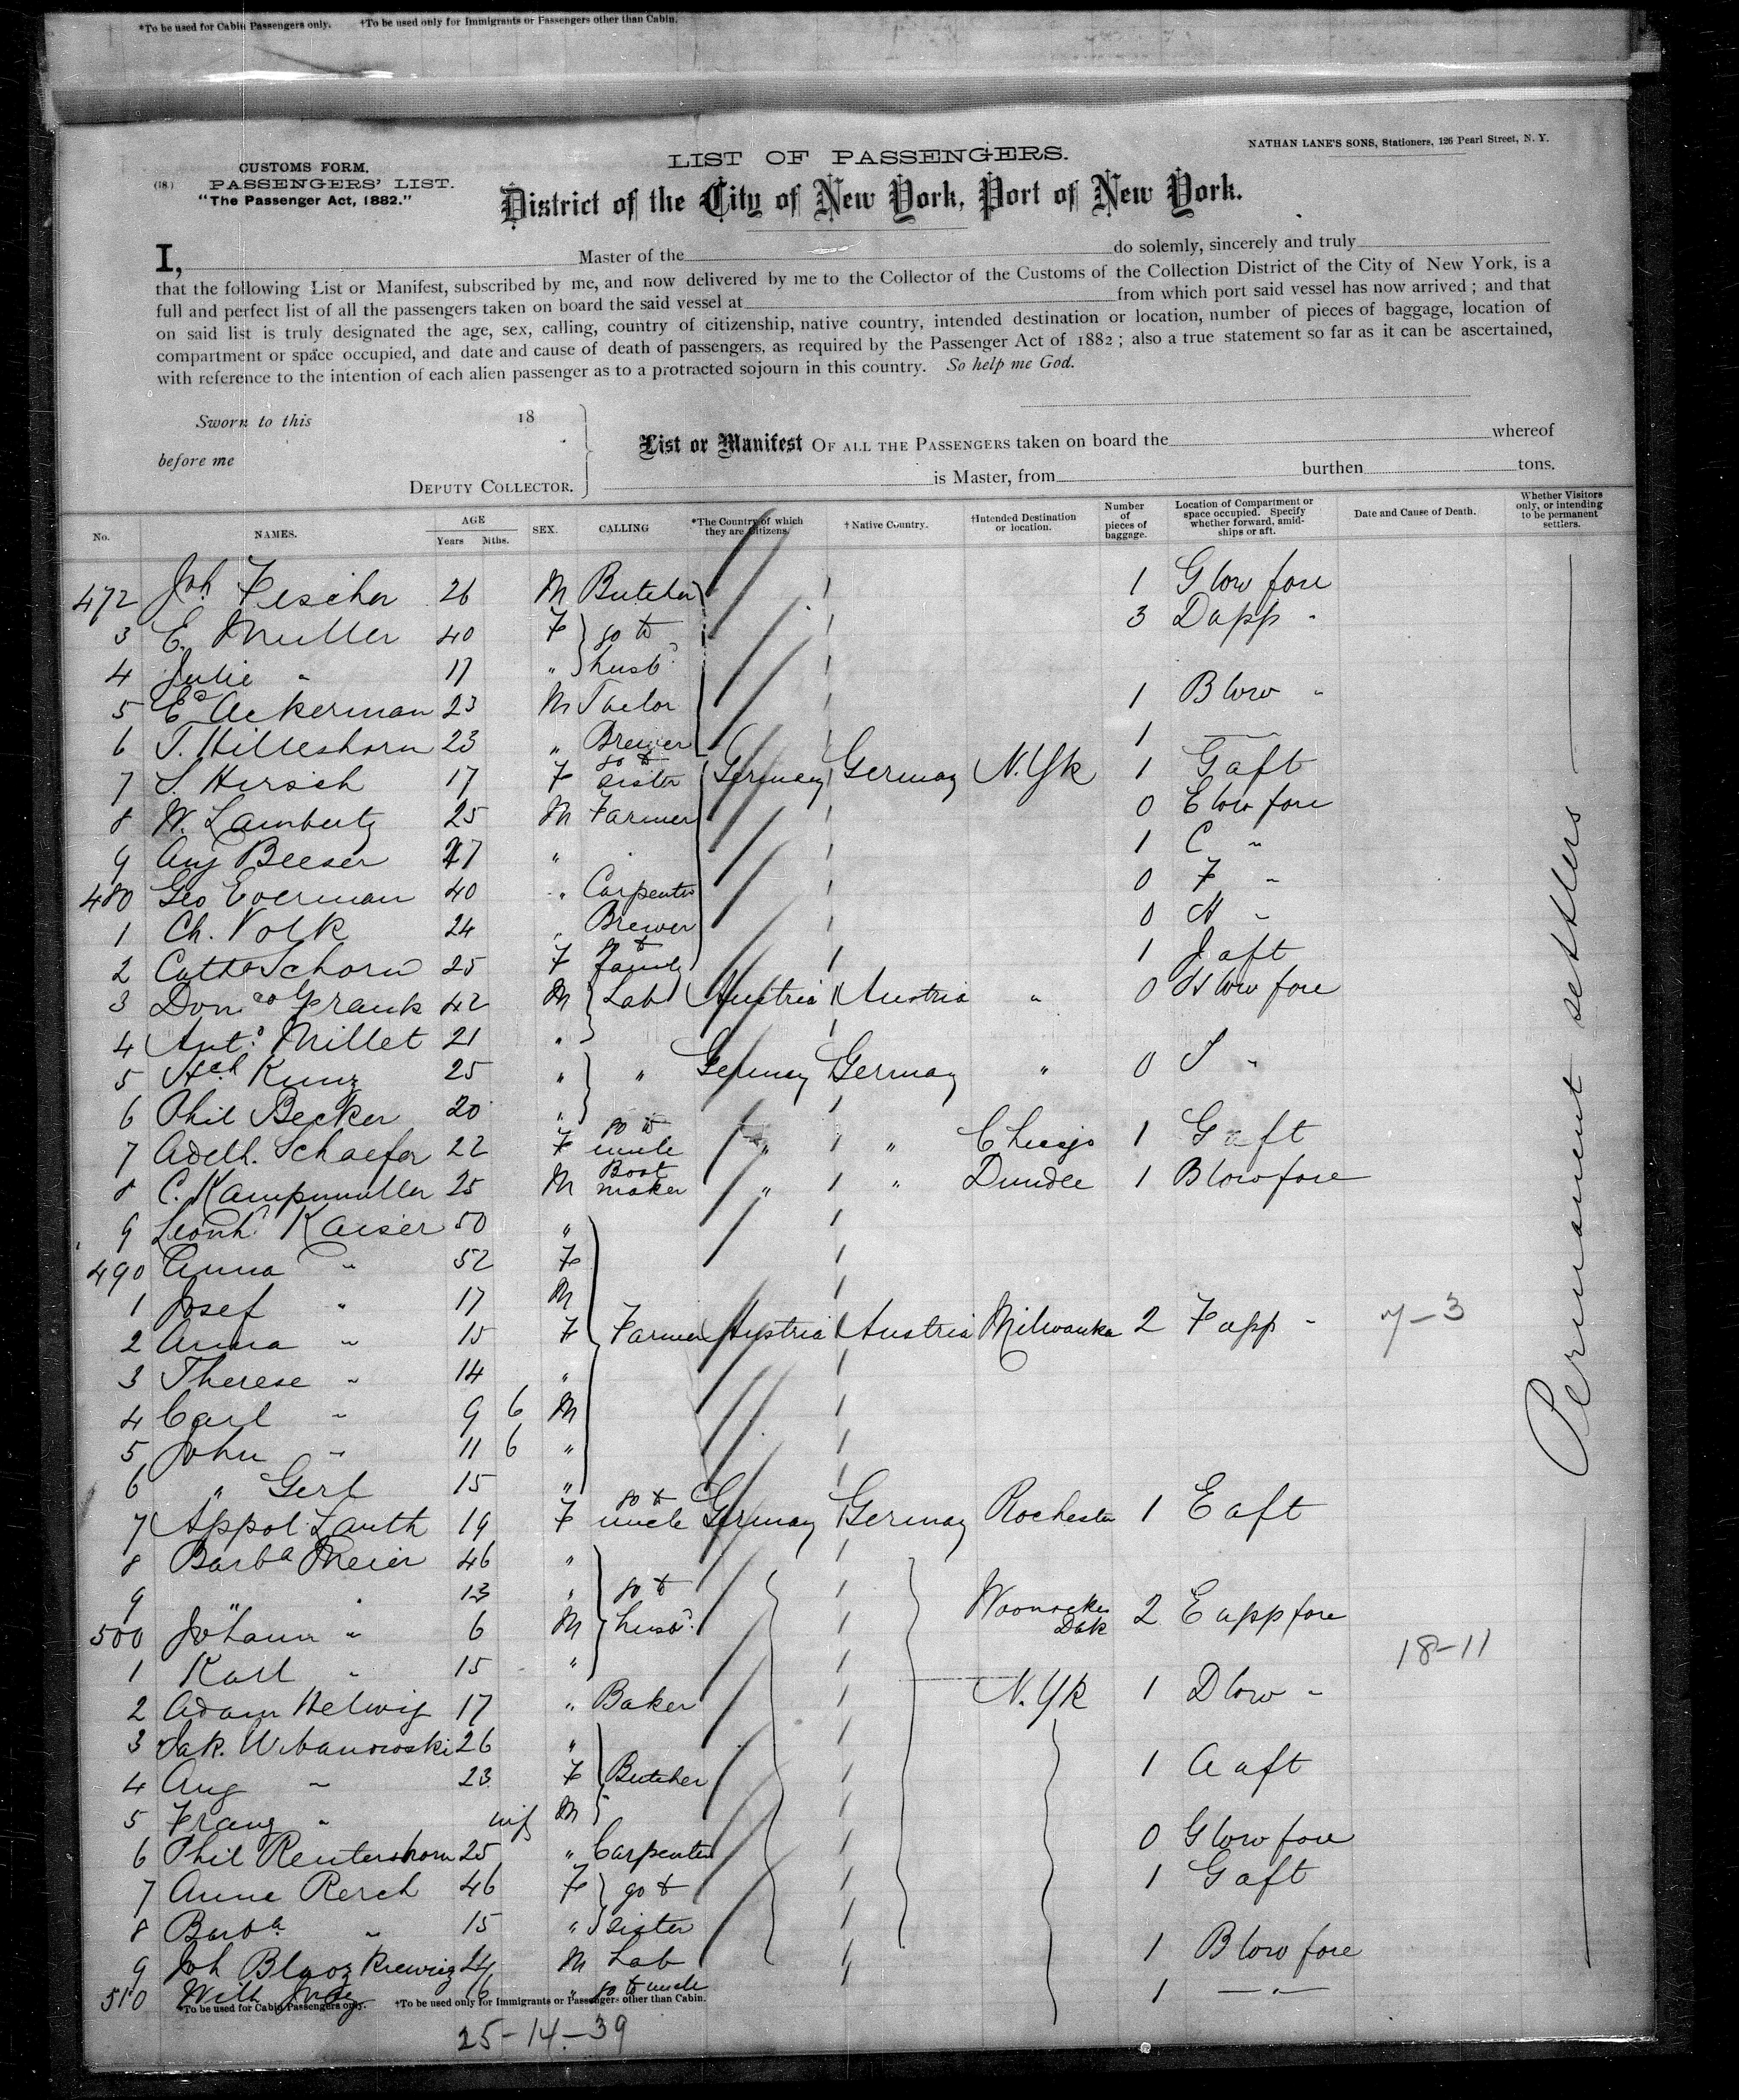 *To be used for Cabin Passengers only. †To be used only for Immigrants or Passengers other than Cabin.
NATHAN LANE'S SONS, Stationers, 126 Pearl Street, N. Y.
CUSTOMS FORM.
(18) PASSENGERS' LIST.
"The Passenger Act, 1882."
LIST OF PASSENGERS.
District of the City of New York, Port of New York.
I, Master of the do solemly, sincerely and truly
that the following List or Manifest, subscribed by me, and now delivered by me to the Collector of the Customs of the Collection District of the City of New York, is a
full and perfect list of all the passengers taken on board the said vessel at from which port said vessel has now arrived; and that
on said list is truly designated the age, sex, calling, country of citizenship, native country, intended destination or location, number of pieces of baggage, location of
compartment or space occupied, and date and cause of death of passengers, as required by the Passenger Act of 1882; also a true statement so far as it can be ascertained,
with reference to the intention of each alien passenger as to a protracted sojourn in this country. So help me God.
Sworn to this 18
before me
DEPUTY COLLECTOR.
List or Manifest OF ALL THE PASSENGERS taken on board the whereof
is Master, from burthen tons.
No. NAMES. AGE Years Mths. SEX. CALLING *The Country of which they are Citizens. †Native Country. †Intended Destination or location. Number of pieces of baggage. Location of Compartment or space occupied. Specify whether forward, amidships or aft. Date and Cause of Death. Whether Visitors only, or intending to be permanent settlers.
472 Joh. Fischer 26 M Butcher 1 G low fore
3 E. Muller 40 F go to 3 D app "
4 Julie " 17 " husbd
5 Ed Ackerman 23 M Tailor 1 B low "
6 T. Hilleshorn 23 " Brewer 1 —
7 S. Hirsch 17 F go to sister Germany Germany N.Yk 1 G aft
8 W. Lambertz 25 M Farmer 0 E low fore
9 Aug Beeser 27 " " 1 C "
480 Geo Everman 40 " Carpenter 0 F "
1 Ch. Volk 24 " Brewer 0 H "
2 Catha Schorn 25 F go to family 1 J aft
3 Domco Grank 42 M Lab Austria Austria " 0 H low fore
4 Anto Millet 21 "
5 Hch Kunz 25 " " Germany Germany " 0 J "
6 Phil Becker 20 "
7 Adelh. Schaefer 22 F go to uncle " " Chicago 1 G aft
8 C. Kampmuller 25 M Boot maker " " Dundee 1 B low fore
9 Leonh. Kaiser 50 "
490 Anna " 52 F
1 Josef " 17 M
2 Anna " 15 F Farmer Austria Austria Milwaukee 2 F app " 7-3
3 Therese " 14 "
4 Carl " 9 6 M
5 John " 11 6 "
6 " Gerl 15 "
7 Appol. Lauth 19 F go to uncle Germany Germany Rochester 1 E aft
8 Barba Meier 46 "
9 " " 13 " go to
500 Johann " 6 M husbd. Dak 2 E app fore
1 Karl " 15 " 18-11
2 Adam Helwig 17 " Baker N.Yk 1 D low "
3 Jak. Urbanowski 26 "
4 Aug " 23 F Butcher 1 A aft
5 Franz " inf M
6 Phil Rentershorn 25 " Carpenter 0 G low fore
7 Anna Rerch 46 F go to 1 G aft
8 Barba " 15 " sister
9 Joh 24 M Lab 1 B low fore
510 Wilh 16 " go to uncle 1 — " —
Permanent settlers
*To be used for Cabin Passengers only. †To be used only for Immigrants or Passengers other than Cabin.
25-14-39